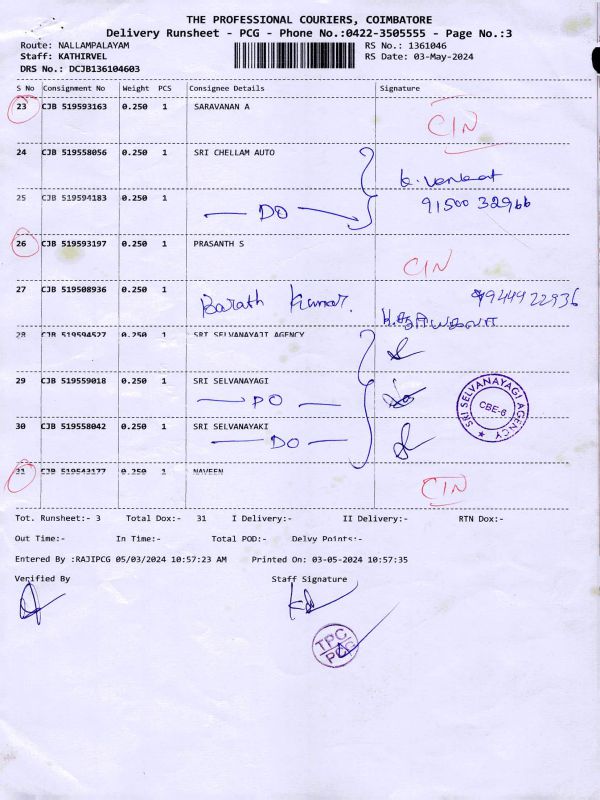 THE PROFESSIONAL COURIERS, COIMBATORE
Delivery Runsheet - PCG - Phone No.:0422-3505555 - Page No.:3
Route: NALLAMPALAYAM RS No.: 1361046
Staff: KATHIRVEL RS Date: 03-May-2024
DRS No.: DCJB136104603
S No Consignment No Weight PCS Consignee Details Signature
23 CJB 519593163 0.250 1 SARAVANAN A CIN
24 CJB 519558056 0.250 1 SRI CHELLAM AUTO
K. Venkat
25 CJB 519594183 0.250 1 91500 32966
DO
26 CJB 519593197 0.250 1 PRASANTH S
CIN
27 CJB 519508936 0.250 1 Barath Kumar. 9944922936
28 CJB 519594527 0.250 1 SRI SELVANAYAJI AGENCY
29 CJB 519559018 0.250 1 SRI SELVANAYAGI
DO
SRI SELVANAYAGI AGENCY
CBE-6
30 CJB 519558042 0.250 1 SRI SELVANAYAKI
DO
31 CJB 519543177 0.250 1 NAVEEN
CIN
Tot. Runsheet:- 3 Total Dox:- 31 I Delivery:- II Delivery:- RTN Dox:-
Out Time:- In Time:- Total POD:- Delvy Points:-
Entered By :RAJIPCG 05/03/2024 10:57:23 AM Printed On: 03-05-2024 10:57:35
Verified By Staff Signature
TPC
PCG